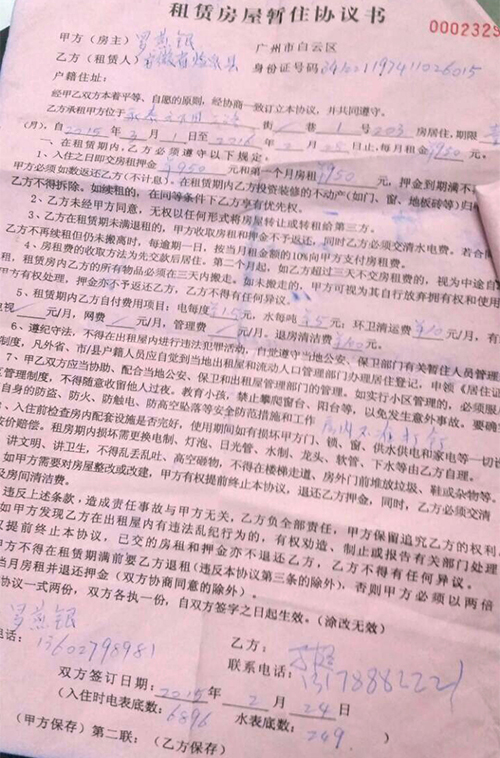 租赁房屋暂住协议书
0002329
甲方（房主）
广州市白云区
乙方（租赁人） 身份证号码
户籍住址：
经甲乙双方本着平等、自愿的原则，经协商一致订立本协议，并共同遵守。
乙方承租甲方位于 街 巷 1 号 203 房居住，期限
（月），自 2015 年 3 月 1 日至 2016 年 2 月 日止，每月租金 ¥950 元。
一、在租赁期内，乙方必须遵守以下规定。
1、入住之日即交房租押金 ¥950 元和第一个月房租 ¥950 元，押金到期满不
甲方必须如数返还乙方（不计息）。在租赁期内乙方投资装修的不动产（如门、窗、地板砖等）归
乙方不得拆除。如续租的，在同等条件下乙方享有优先权。
2、乙方未经甲方同意，无权以任何形式将房屋转让或转租给第三方。
3、乙方在租赁期未满退租的，甲方收取房租和押金不予返还，同时乙方必须交清水电费。若合同
乙方不再续租但仍未搬离时，每逾期一日，按当月租金额的10%向甲方支付房租费。
4、房租费的收取方法为先交款后居住。第二个月起，如乙方超过三天不交房租费的，视为中途自
租，租赁房内乙方的所有物品必须在三天内搬走。如未搬走的，甲方可视为其自行放弃拥有权和使用
甲方有权处理，押金亦不予返还乙方，乙方不得有任何异议。
5、租赁期内乙方自付费用项目：电每度 元，水每吨 ¥5 元；环卫清运费 ¥10 元/月，有
电视 / 元/月，网费 / 元/月，管理费 / 元/月，退房清洁费 元。
6、遵纪守法，不得在出租屋内进行违法犯罪活动，自觉遵守当地公安、保卫部门有关暂住人员管理
制度，凡外省、市/县户籍人员应自觉到当地出租屋和流动人口管理部门办理居住登记，申领《居住证
7、甲乙双方应当协助、配合当地公安、保卫和出租屋管理部门的管理。如实行小区管理的，必须服
区管理制度，不得随意收留他人过夜。教育小孩，禁止攀爬窗台、阳台等，以免发生意外事故。要确
自身的防盗、防火、防触电、防高空坠落等安全防范措施和工作
、入住前检查房内配套设施是否完好，使用期间如有损坏甲方门、锁、窗、供水供电和家电等一切设
安价赔偿。租房期内损坏需更换电制、灯泡、日光管、水制、龙头、软管、下水等由乙方自理。
、讲文明、讲卫生，不得乱丢乱吐、高空砸物，不得在楼梯走道、房外门前堆放垃圾、鞋或杂物等。
、如甲方需要对房屋整改或改建，甲方有权提前终止本协议，退还乙方押金，同时，乙方必须交清
及房间清洁费。
违反上述条款，造成责任事故与甲方无关，乙方负全部责任，甲方保留追究乙方的权利
如甲方发现乙方在出租屋内有违法乱纪行为的，有权劝造、制止或报告有关部门处理
又提前终止本协议，已交的房租和押金亦不退还乙方，乙方不得有任何异议。
甲方不得在租赁期满前要乙方退租（违反本协议第三条的除外），否则甲方必须以两倍
当月房租并退还押金（双方协商同意的除外）。
协议一式两份，双方各执一份，自双方签字之日起生效。（涂改无效）
乙方：
电话： 13602798981 联系电话：
双方签订日期： 2015 年 2 月 24 日
（入住时电表底数： 6896 水表底数： 249 ）
（甲方保存）第二联：（乙方保存）